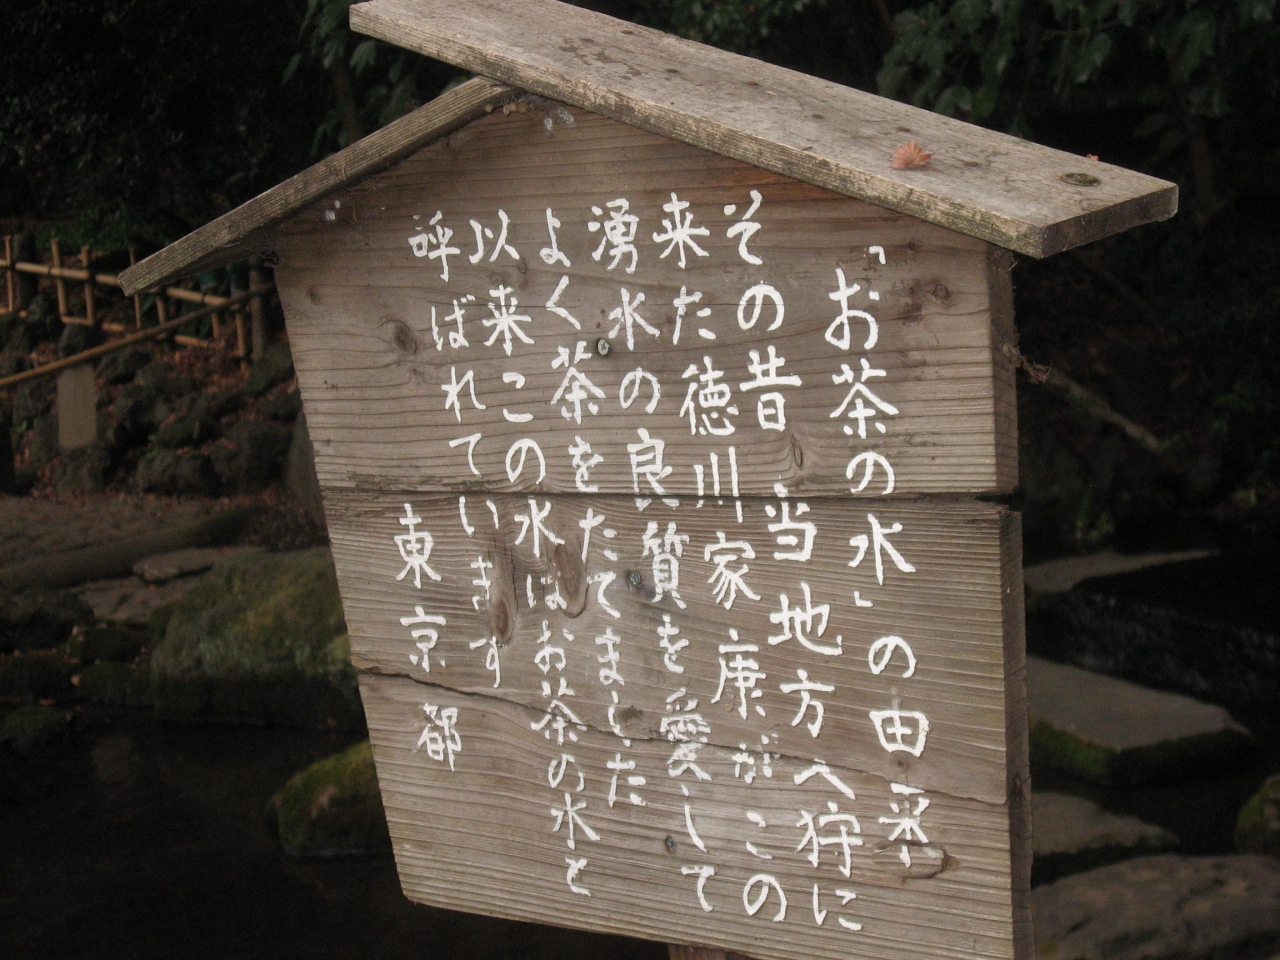 「お茶の水」の由来
その昔当地方へ狩に
来た徳川家康がこの
湧水の良質を愛して
よく茶をたてました
以来この水はお茶の水と
呼ばれています
東京都